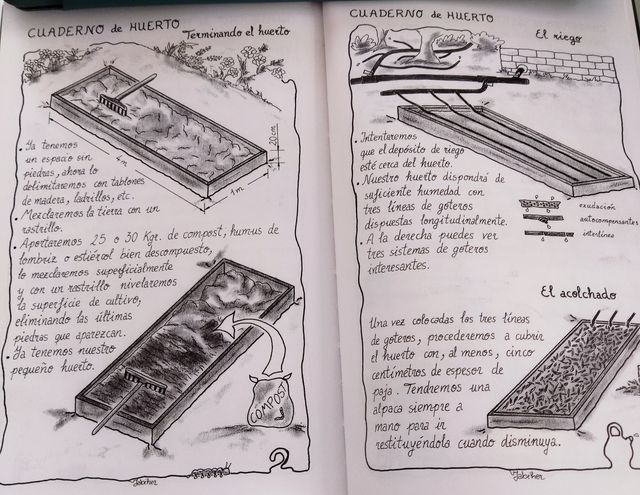 CUADERNO de HUERTO
Terminando el huerto
4m
1m
20cm
• Ya tenemos
un espacio sin
piedras, ahora lo
delimitaremos con tablones
de madera, ladrillos, etc.
• Mezclaremos la tierra con un
rastrillo.
• Aportaremos 25 o 30 Kgr. de compost, humus de
lombriz o estiércol bien descompuesto,
lo mezclaremos superficialmente
y con un rastrillo nivelaremos
la superficie de cultivo,
eliminando las últimas
piedras que aparezcan.
• Ya tenemos nuestro
pequeño huerto.
COMPOST
2
CUADERNO de HUERTO
El riego
• Intentaremos
que el depósito de riego
esté cerca del huerto.
• Nuestro huerto dispondrá de
suficiente humedad con
tres líneas de goteros
dispuestas longitudinalmente.
• A la derecha puedes ver
tres sistemas de goteros
interesantes.
exudación
autocompensantes
interlínea
El acolchado
Una vez colocadas las tres líneas
de goteros, procederemos a cubrir
el huerto con, al menos, cinco
centímetros de espesor de
paja. Tendremos una
alpaca siempre a
mano para ir
restituyéndola cuando disminuya.